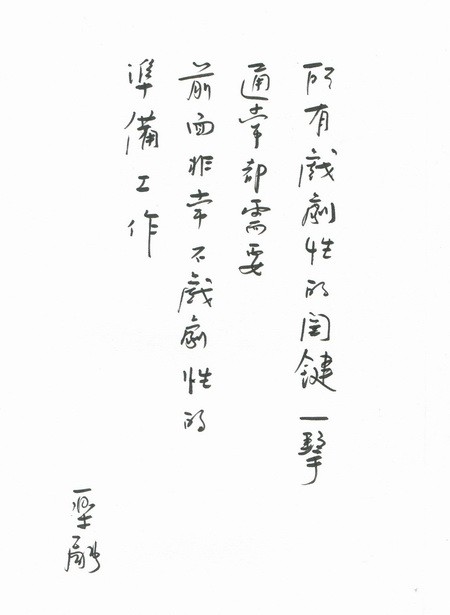 所有戲劇性的関鍵一擊
通常都需要
前面非常不戲劇性的
準備工作